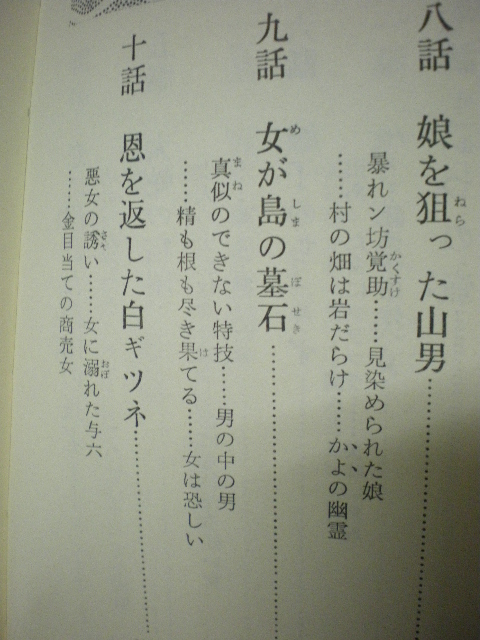 八話　娘を狙った山男……………
暴れン坊覚助……見染められた娘
……村の畑は岩だらけ……かよの幽霊
九話　女が島の墓石……………
真似のできない特技……男の中の男
……精も根も尽き果てる……女は恐しい
十話　恩を返した白ギツネ……………
悪女の誘い……女に溺れた与六
……金目当ての商売女